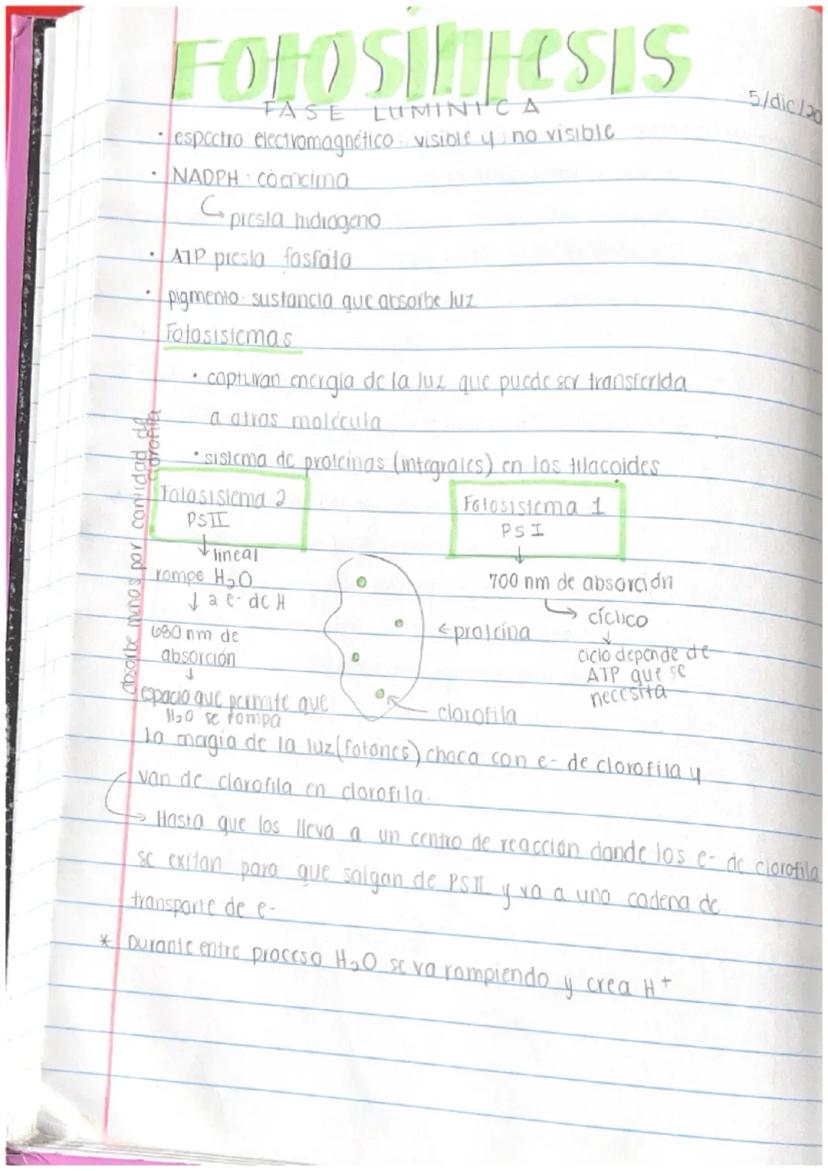 Fotosíntesis
FASE LUMINICA
5/dic/20
• espectro electromagnético: visible y no visible
• NADPH: coencima
↳ presta hidrogeno
• ATP presta fosfato
• pigmento: sustancia que absorbe luz
Fotosistemas
• capturan energía de la luz que puede ser transferida
a otras molécula
• sistema de proteinas (integrales) en los tilacoides
absorbe menos por cantidad de
clorofila
Fotosistema 2
PSII
↓ lineal
rompe H₂O
↓ 2 e- de H
680 nm de
absorción
↓
espacio que permite que
H₂O se rompa
← proteína
clorofila
Fotosistema 1
PSI
↓
700 nm de absorción
↳ cíclico
↓
ciclo depende de
ATP que se
necesita
la magia de la luz (fotones) choca con e- de clorofila y
van de clorofila en clorofila.
→ Hasta que los lleva a un centro de reacción donde los e- de clorofila
se exitan para que salgan de PSII y va a una cadena de
transporte de e-
* Durante entre proceso H₂O se va rompiendo y crea H⁺